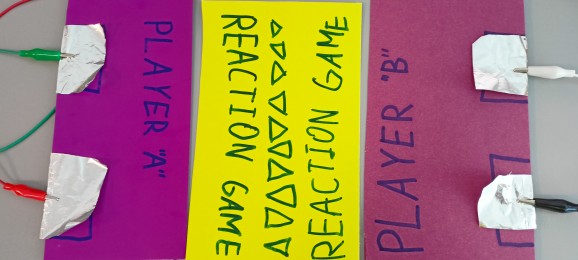 PLAYER "A"
REACTION GAME
REACTION GAME
PLAYER "B"